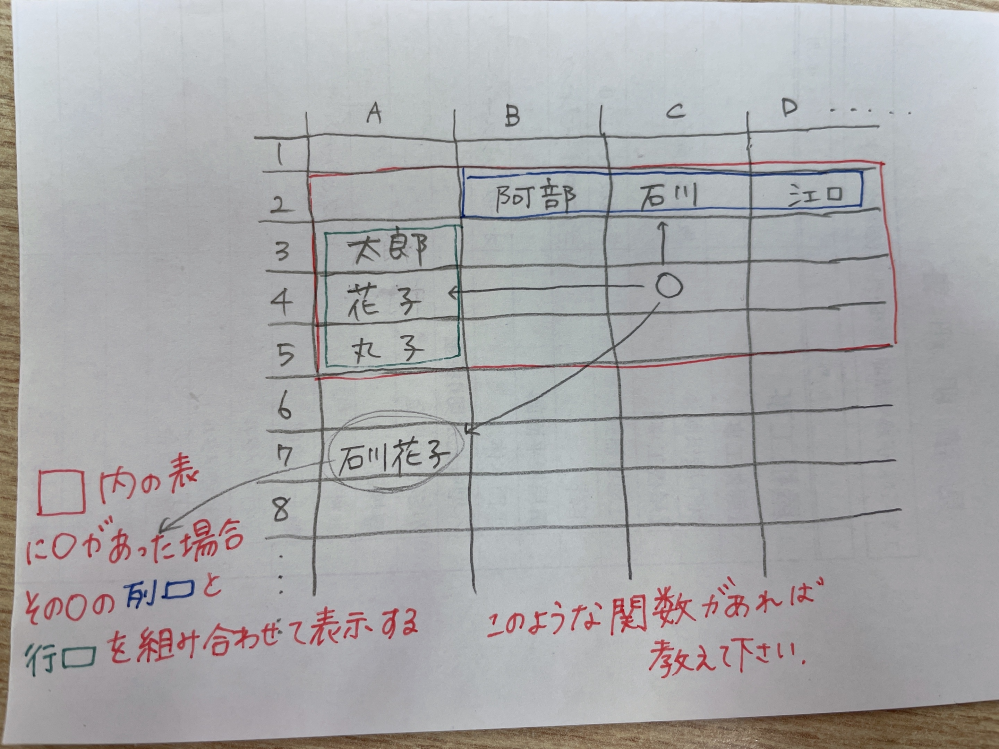 A B C D ・・・・・
1
2 阿部 石川 江口
3 太郎
4 花子 ○
5 丸子
6
7 石川花子
8
□内の表
に○があった場合
その○の列□と
行□を組み合わせて表示する
このような関数があれば
教えて下さい.